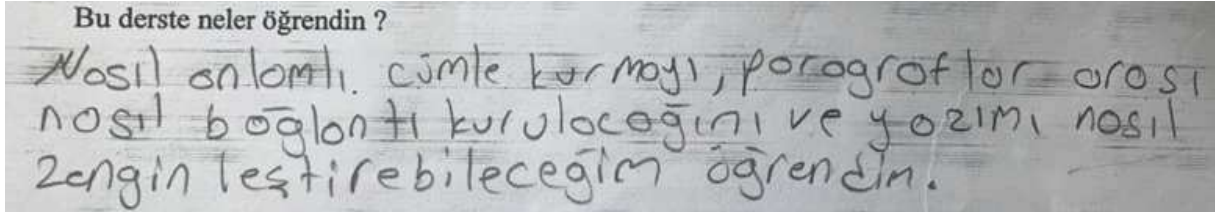 Bu derste neler öğrendin ?
Nasıl anlamlı. cümle kurmayı, paragraflar arası
nasıl bağlantı kurulacağını ve yazımı nasıl
zenginleştirebileceğim öğrendim.